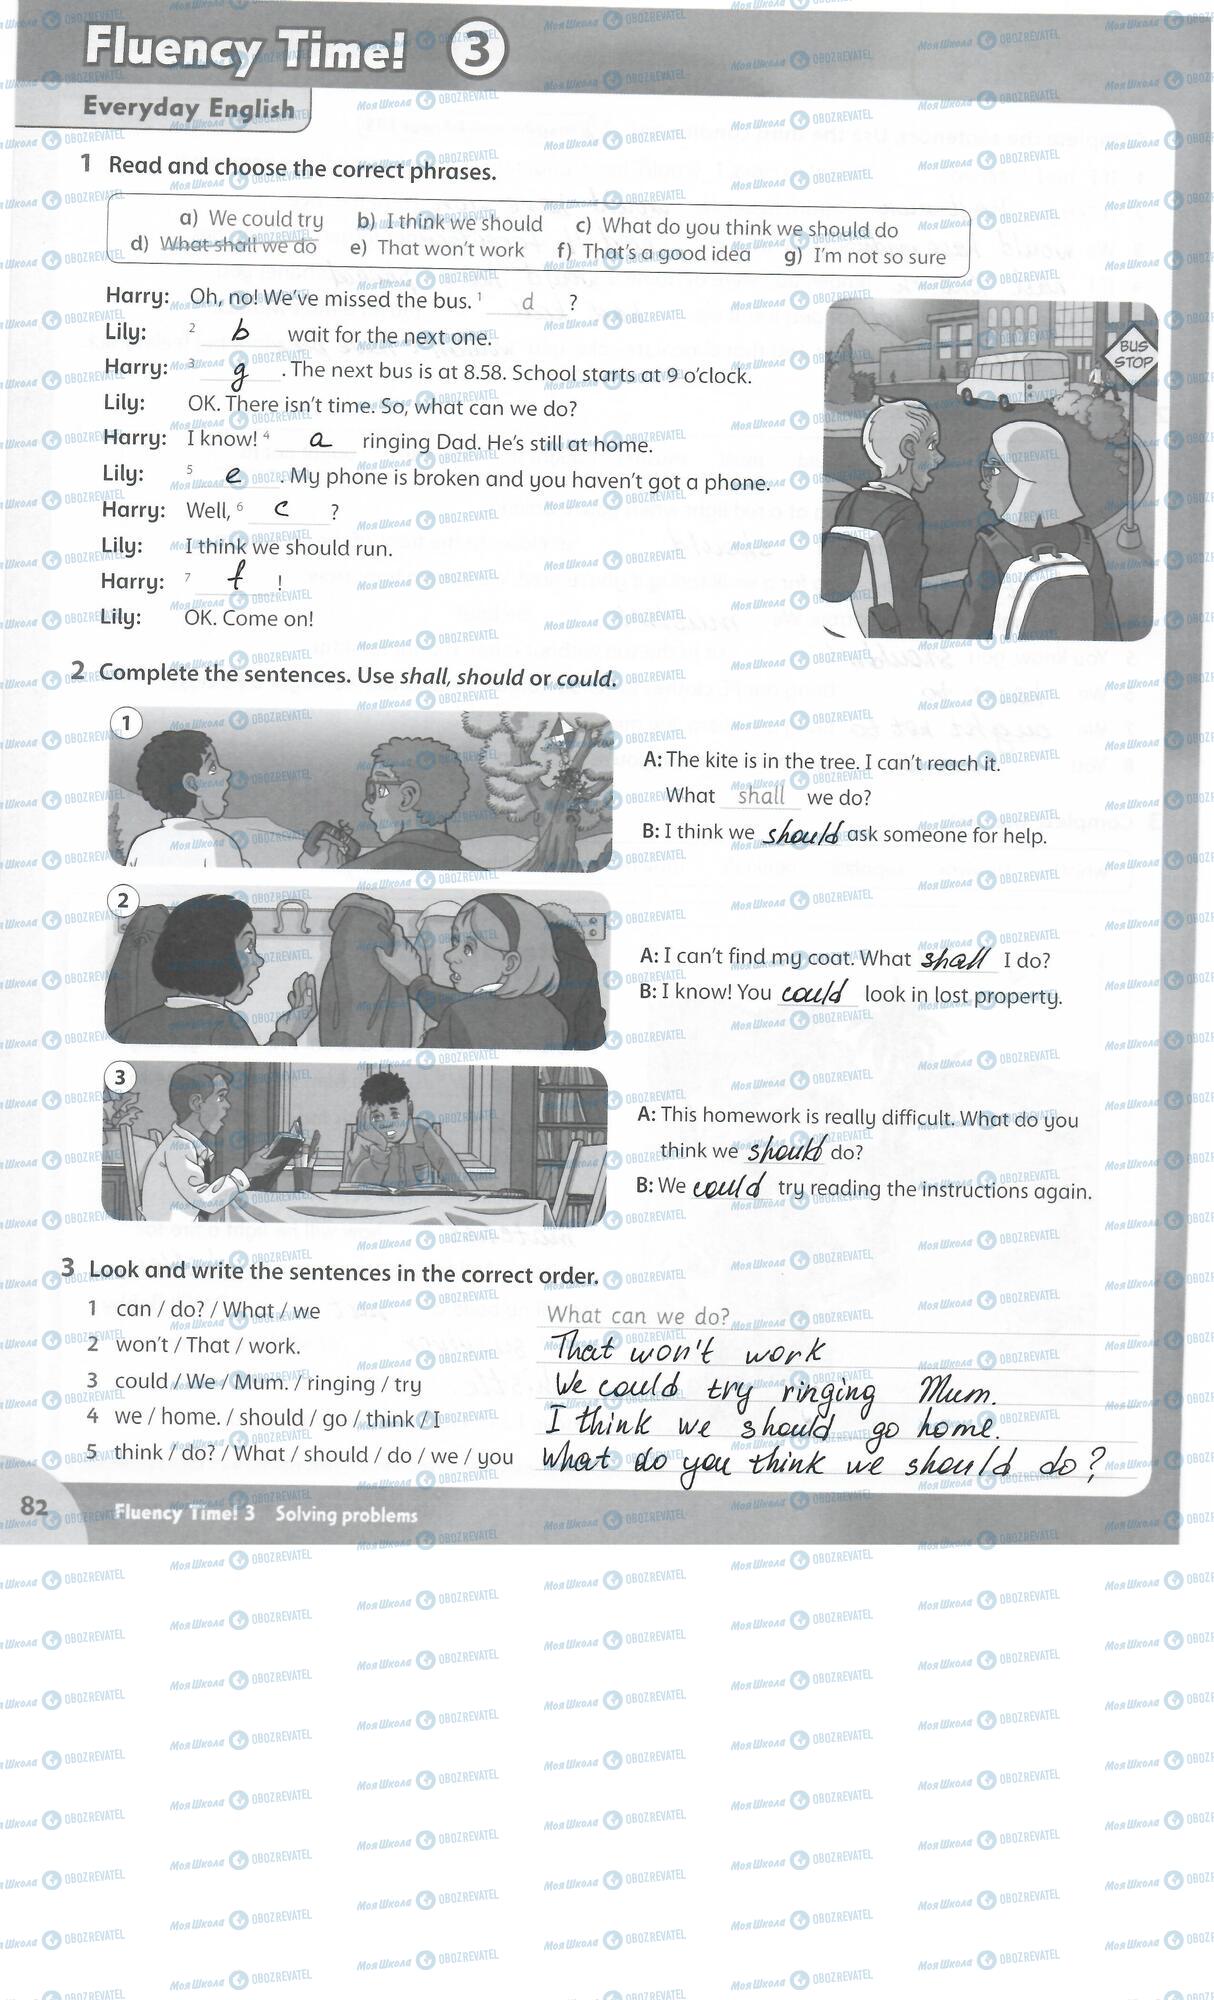 Fluency Time! 3
Everyday English
1 Read and choose the correct phrases.
a) We could try b) I think we should c) What do you think we should do
d) What shall we do e) That won't work f) That's a good idea g) I'm not so sure
Harry: Oh, no! We've missed the bus. 1 d ?
Lily: 2 b wait for the next one.
Harry: 3 g . The next bus is at 8.58. School starts at 9 o'clock.
Lily: OK. There isn't time. So, what can we do?
Harry: I know! 4 a ringing Dad. He's still at home.
Lily: 5 e . My phone is broken and you haven't got a phone.
Harry: Well, 6 c ?
Lily: I think we should run.
Harry: 7 f !
Lily: OK. Come on!
BUS
STOP
2 Complete the sentences. Use shall, should or could.
1
A: The kite is in the tree. I can't reach it.
What shall we do?
B: I think we should ask someone for help.
2
A: I can't find my coat. What shall I do?
B: I know! You could look in lost property.
3
A: This homework is really difficult. What do you
think we should do?
B: We could try reading the instructions again.
3 Look and write the sentences in the correct order.
1 can / do? / What / we What can we do?
2 won't / That / work. That won't work
3 could / We / Mum. / ringing / try We could try ringing Mum.
4 we / home. / should / go / think / I I think we should go home.
5 think / do? / What / should / do / we / you What do you think we should do?
82 Fluency Time! 3 Solving problems
МояШкола OBOZREVATEL